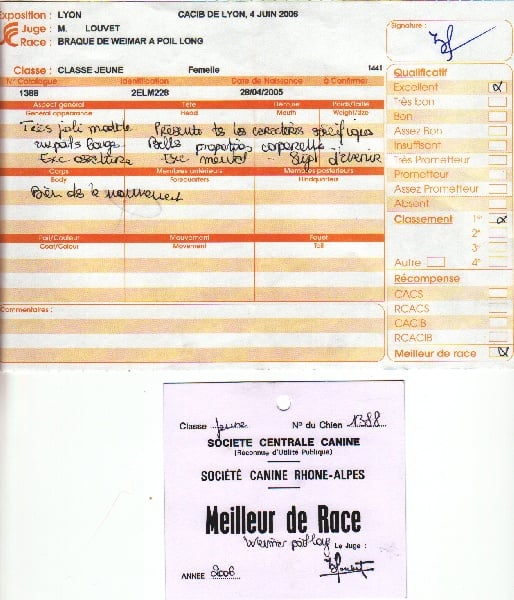 Exposition : LYON CACIB DE LYON, 4 JUIN 2006
Juge : M. LOUVET
Race : BRAQUE DE WEIMAR A POIL LONG
Signature :
Classe : CLASSE JEUNE Femelle 1441
N° Catalogue Identification Date de Naissance à Confirmer
1388 2ELM228 28/04/2005
Aspect général Tête Denture Poids/Taille
General appearance Head Mouth Weight/size
Très joli modèle Présente ts les caractères spécifiques
Belles proportions
Exc ossature Exc mental Sujet d'avenir
Corps Membres antérieurs Membres postérieurs
Body Forequarters Hindquarters
Bien ds le mouvement
Poil/Couleur Mouvement Fouet
Coat/Colour Movement Tail
Commentaires :
Qualificatif
Excellent
Très bon
Bon
Assez Bon
Insuffisant
Très Prometteur
Prometteur
Assez Prometteur
Absent
Classement 1er
2e
3e
Autre 4e
Récompense
CACS
RCACS
CACIB
RCACIB
Meilleur de race
Classe Jeune N° du Chien 1388
SOCIETE CENTRALE CANINE
(Reconnue d'Utilité Publique)
SOCIÉTÉ CANINE RHONE-ALPES
Meilleur de Race
Weimar poil long Le Juge :
ANNÉE 2006